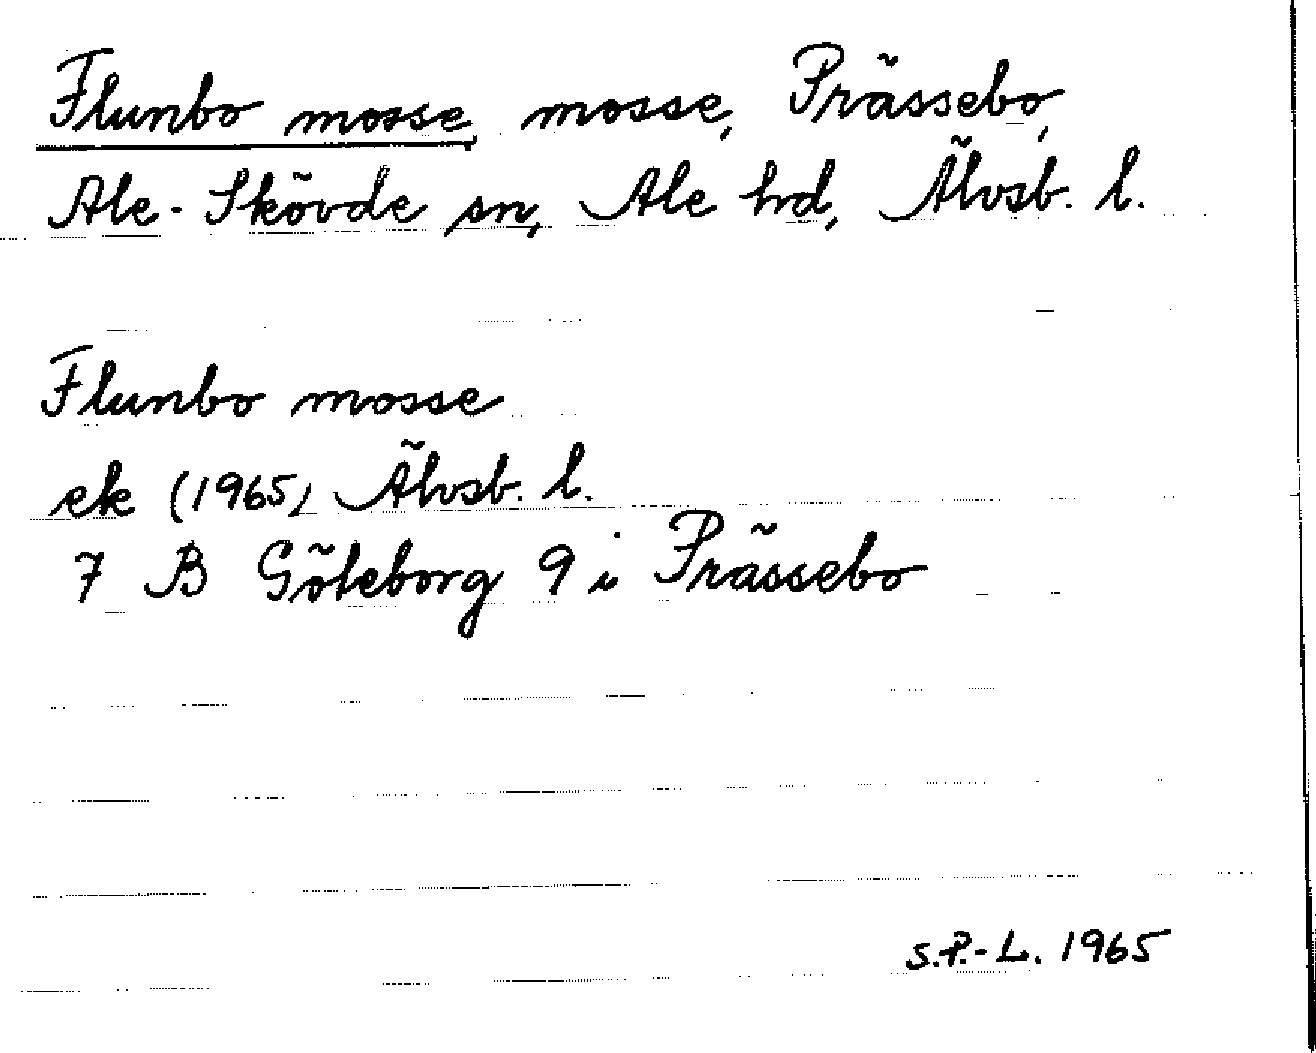 Flunbo mosse, mosse, Prässebo,
Ale-Skövde sn, Ale hd, Älvsb. l.
Flunbo mosse
ek (1965) Älvsb. l.
7 B Göteborg 9 i Prässebo
S.P.-L. 1965